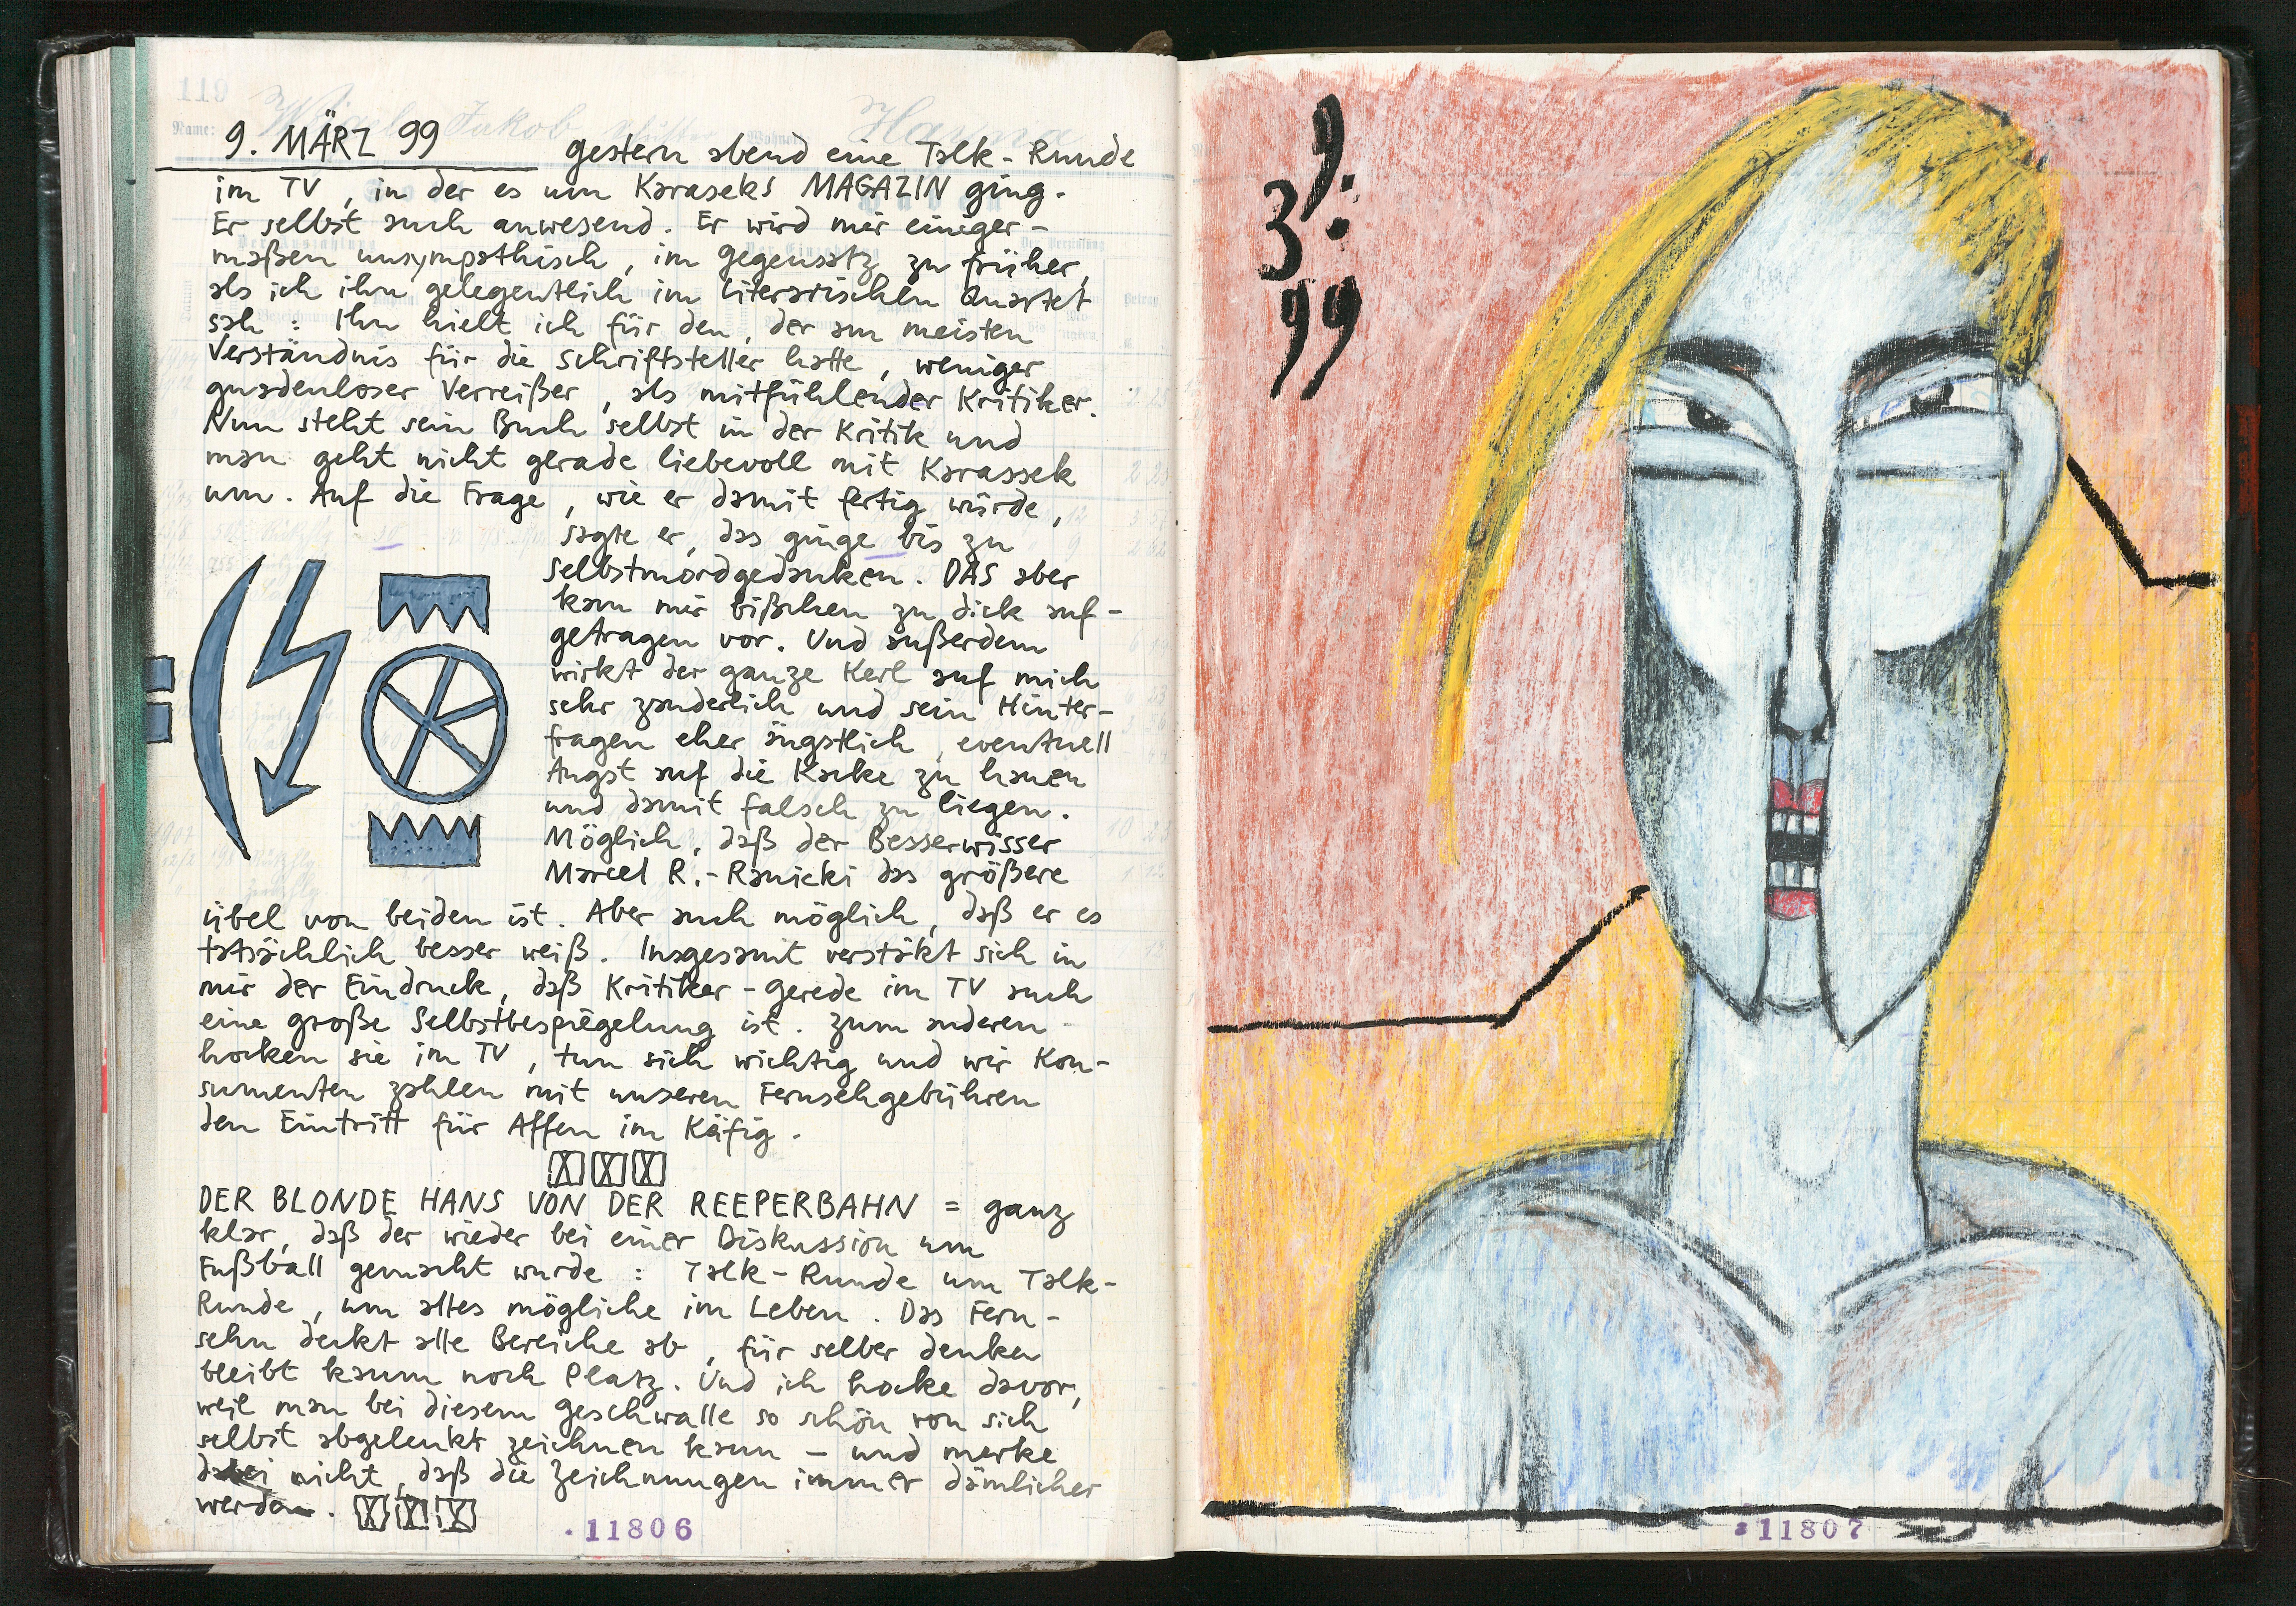 119
Name:
Jakob
9. MÄRZ 99 gestern abend eine Talk-Runde
im TV, in der es um Karaseks MAGAZIN ging.
Er selbst auch anwesend. Er wird mir einiger-
maßen unsympathisch, im Gegensatz zu früher,
als ich ihn gelegentlich im Literarischen Quartet
sah: Ihn hielt ich für den, der am meisten
Verständnis für die Schriftsteller hatte, weniger
gnadenloser Verreißer, als mitfühlender Kritiker.
Nun steht sein Buch selbst in der Kritik und
man geht nicht gerade liebevoll mit Karassek
um. Auf die Frage, wie er damit fertig würde,
sagte er, das ginge bis zu
Selbstmordgedanken. DAS aber
kam mir bißchen zu dick auf-
getragen vor. Und außerdem
wirkt der ganze Kerl auf mich
sehr zauderlich und sein Hinter-
fragen eher ängstlich, eventuell
Angst auf die Kacke zu hauen
und damit falsch zu liegen.
Möglich, daß der Besserwisser
Marcel R.-Ranicki das größere
Übel von beiden ist. Aber auch möglich, daß er es
tatsächlich besser weiß. Insgesamt verstäkt sich in
mir der Eindruck, daß Kritiker-Gerede im TV auch
eine große Selbstbespiegelung ist. Zum anderen
hocken sie im TV, tun sich wichtig und wir Kon-
sumenten zahlen mit unseren Fernsehgebühren
den Eintritt für Affen im Käfig.
DER BLONDE HANS VON DER REEPERBAHN = ganz
klar, daß der wieder bei einer Diskussion um
Fußball gemacht wurde: Talk-Runde um Talk-
Runde, um alles mögliche im Leben. Das Fern-
sehn deckt alle Bereiche ab, für selber denken
bleibt kaum noch Platz. Und ich hocke davor,
weil man bei diesem Geschwalle so schön von sich
selbst abgelenkt zeichnen kann - und merke
dabei nicht, daß die Zeichnungen immer dämlicher
werden.
11806
9.
3.
99
11807